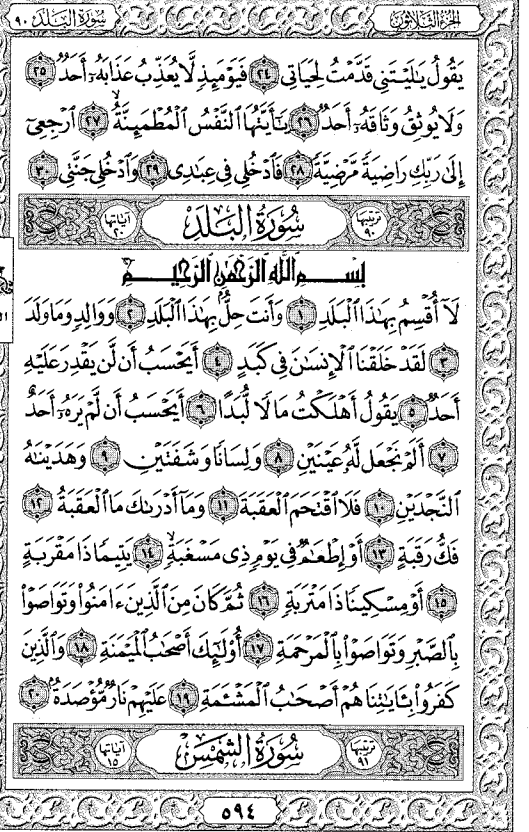 سُورَةُ البَلَد ٩٠
الجُزْءُ الثَّلَاثُونَ
يَقُولُ يَٰلَيْتَنِى قَدَّمْتُ لِحَيَاتِى ٢٤ فَيَوْمَئِذٍ لَّا يُعَذِّبُ عَذَابَهُۥٓ أَحَدٌ ٢٥
وَلَا يُوثِقُ وَثَاقَهُۥٓ أَحَدٌ ٢٦ يَٰٓأَيَّتُهَا ٱلنَّفْسُ ٱلْمُطْمَئِنَّةُ ٢٧ ٱرْجِعِىٓ
إِلَىٰ رَبِّكِ رَاضِيَةً مَّرْضِيَّةً ٢٨ فَٱدْخُلِى فِى عِبَٰدِى ٢٩ وَٱدْخُلِى جَنَّتِى ٣٠
ترتيبها ٩٠ سُورَةُ البَلَدِ آياتها ٢٠
بِسْمِ ٱللَّهِ ٱلرَّحْمَٰنِ ٱلرَّحِيمِ
لَآ أُقْسِمُ بِهَٰذَا ٱلْبَلَدِ ١ وَأَنتَ حِلٌّۢ بِهَٰذَا ٱلْبَلَدِ ٢ وَوَالِدٍ وَمَا وَلَدَ
٣ لَقَدْ خَلَقْنَا ٱلْإِنسَٰنَ فِى كَبَدٍ ٤ أَيَحْسَبُ أَن لَّن يَقْدِرَ عَلَيْهِ
أَحَدٌ ٥ يَقُولُ أَهْلَكْتُ مَالًا لُّبَدًا ٦ أَيَحْسَبُ أَن لَّمْ يَرَهُۥٓ أَحَدٌ
٧ أَلَمْ نَجْعَل لَّهُۥ عَيْنَيْنِ ٨ وَلِسَانًا وَشَفَتَيْنِ ٩ وَهَدَيْنَٰهُ
ٱلنَّجْدَيْنِ ١٠ فَلَا ٱقْتَحَمَ ٱلْعَقَبَةَ ١١ وَمَآ أَدْرَىٰكَ مَا ٱلْعَقَبَةُ ١٢
فَكُّ رَقَبَةٍ ١٣ أَوْ إِطْعَٰمٌ فِى يَوْمٍ ذِى مَسْغَبَةٍ ١٤ يَتِيمًا ذَا مَقْرَبَةٍ
١٥ أَوْ مِسْكِينًا ذَا مَتْرَبَةٍ ١٦ ثُمَّ كَانَ مِنَ ٱلَّذِينَ ءَامَنُوا۟ وَتَوَاصَوْا۟
بِٱلصَّبْرِ وَتَوَاصَوْا۟ بِٱلْمَرْحَمَةِ ١٧ أُو۟لَٰٓئِكَ أَصْحَٰبُ ٱلْمَيْمَنَةِ ١٨ وَٱلَّذِينَ
كَفَرُوا۟ بِـَٔايَٰتِنَا هُمْ أَصْحَٰبُ ٱلْمَشْـَٔمَةِ ١٩ عَلَيْهِمْ نَارٌ مُّؤْصَدَةٌۢ ٢٠
ترتيبها ٩١ سُورَةُ الشَّمْسِ آياتها ١٥
٥٩٤